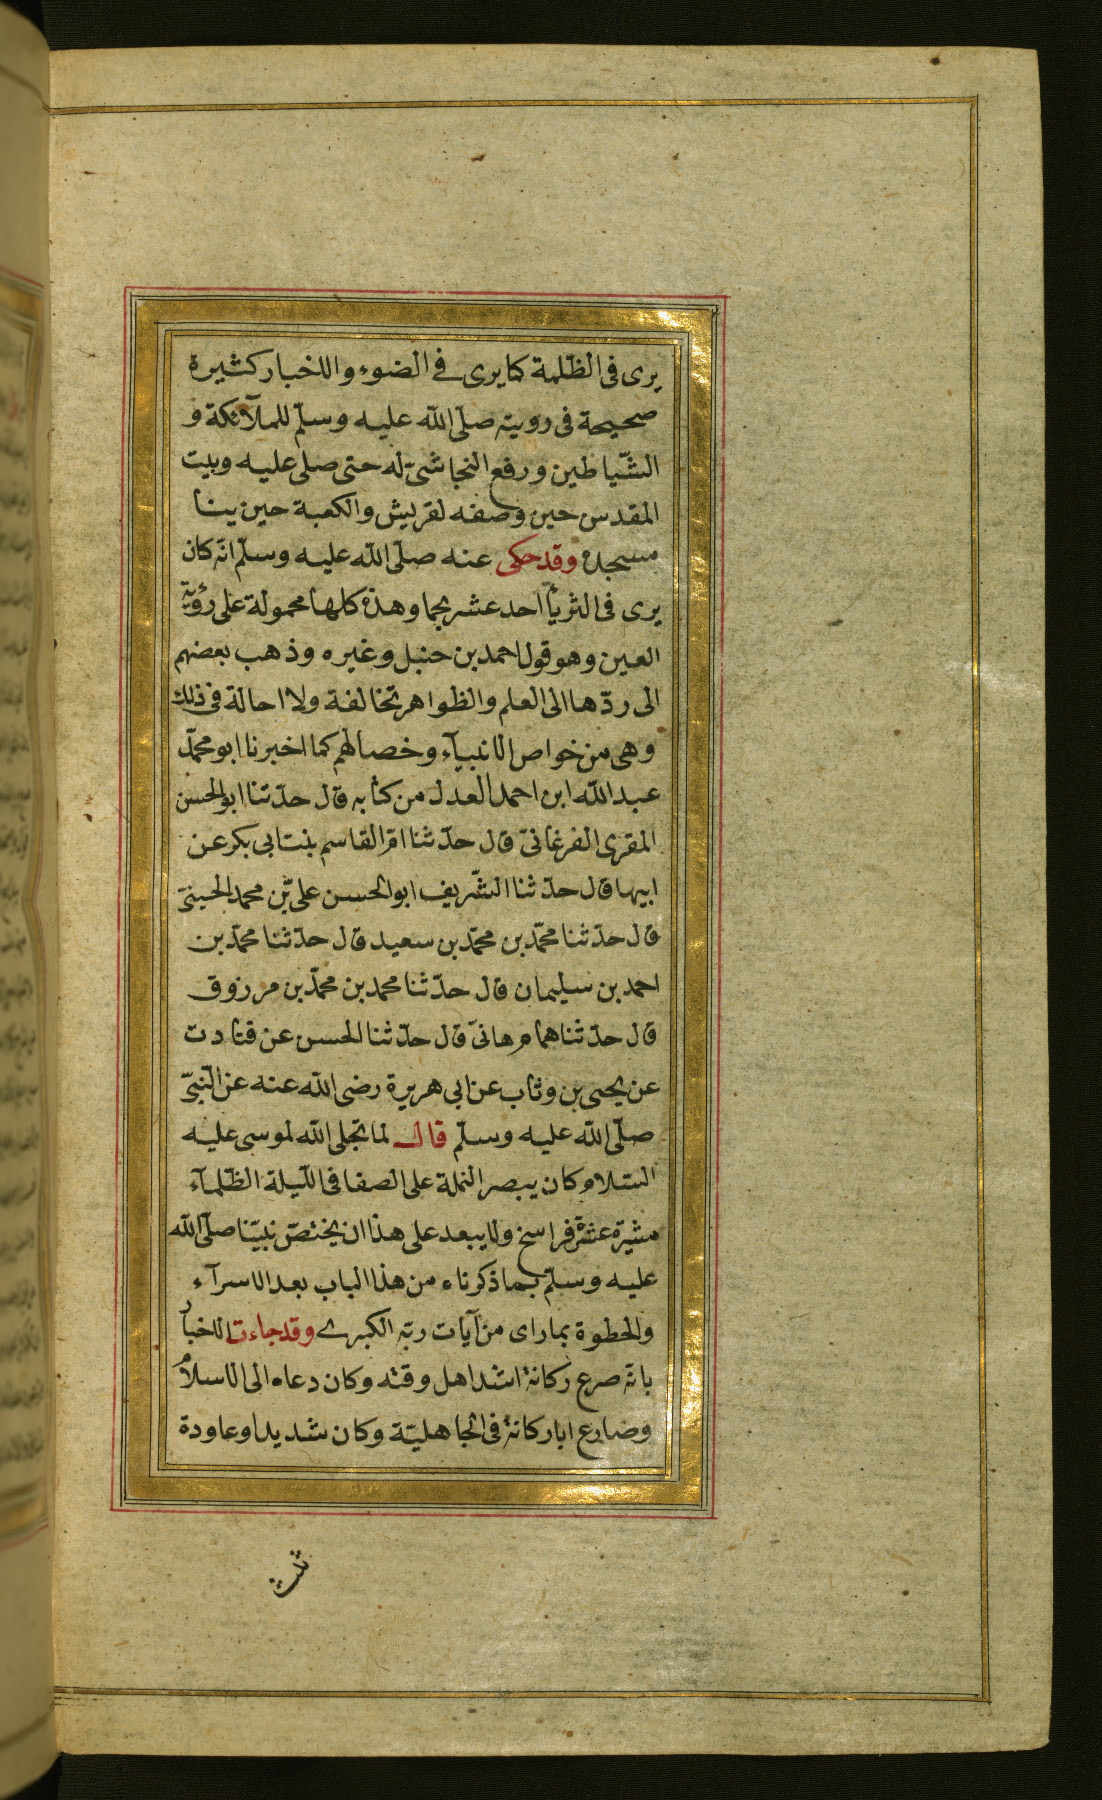 يرى فى الظّلمة كما يرى فى الضوء والاخبار كثيرة
صحيحة فى رويته صلّى الله عليه وسلّم للملآئكة و
الشّياطين ورفع النجاشىّ له حتى صلى عليه وبيت
المقدس حين وصفه لقريش والكعبة حين بنا
مسجده وقد حكى عنه صلّى الله عليه وسلّم انّه كان
يرى فى الثريّا احد عشر نجما وهذه كلها محمولة على رؤية
العين وهو قول احمد بن حنبل وغيره وذهب بعضهم
الى ردّها الى العلم والظواهر تخالفة ولا احالة فى ذلك
وهى من خواص الانبيآء وخصالهم كما اخبرنا ابو محمّد
عبد الله ابن احمد العدل من كتابه قال حدّثنا ابو الحسن
المقرى الفرغانىّ قال حدّثنا امّ القاسم بنت ابى بكر عن
ابيها قال حدّثنا الشّريف ابو الحسن علىّ بن محمد الحسينىّ
قال حدّثنا محمّد بن محمّد بن سعيد قال حدّثنا محمّد بن
احمد بن سليمان قال حدّثنا محمد بن محمّد بن مرزوق
قال حدّثنا همام هانىّ قال حدّثنا الحسن عن قتادت
عن يحيى بن وثاب عن ابى هريرة رضى الله عنه عن النّبىّ
صلّى الله عليه وسلّم قال لما تجلى الله لموسى عليه
السّلام كان يبصر النملة على الصفا فى اللّيلة الظّلمآء
مشيرة عشرة فراسخ ولا يبعد على هذا ان يختصّ نبيّنا صلّى الله
عليه وسلّم بما ذكرناء من هذا الباب بعد الاسرآء
والحظوة بما راى من آيات ربّه الكبرى وقد جاءت الاخبار
بانّه صرع ركانة اشد اهل وقته وكان دعاه الى الاسلام
وضارع ابا ركانة فى الجاهليّة وكان شديدا وعاودة
ثلث